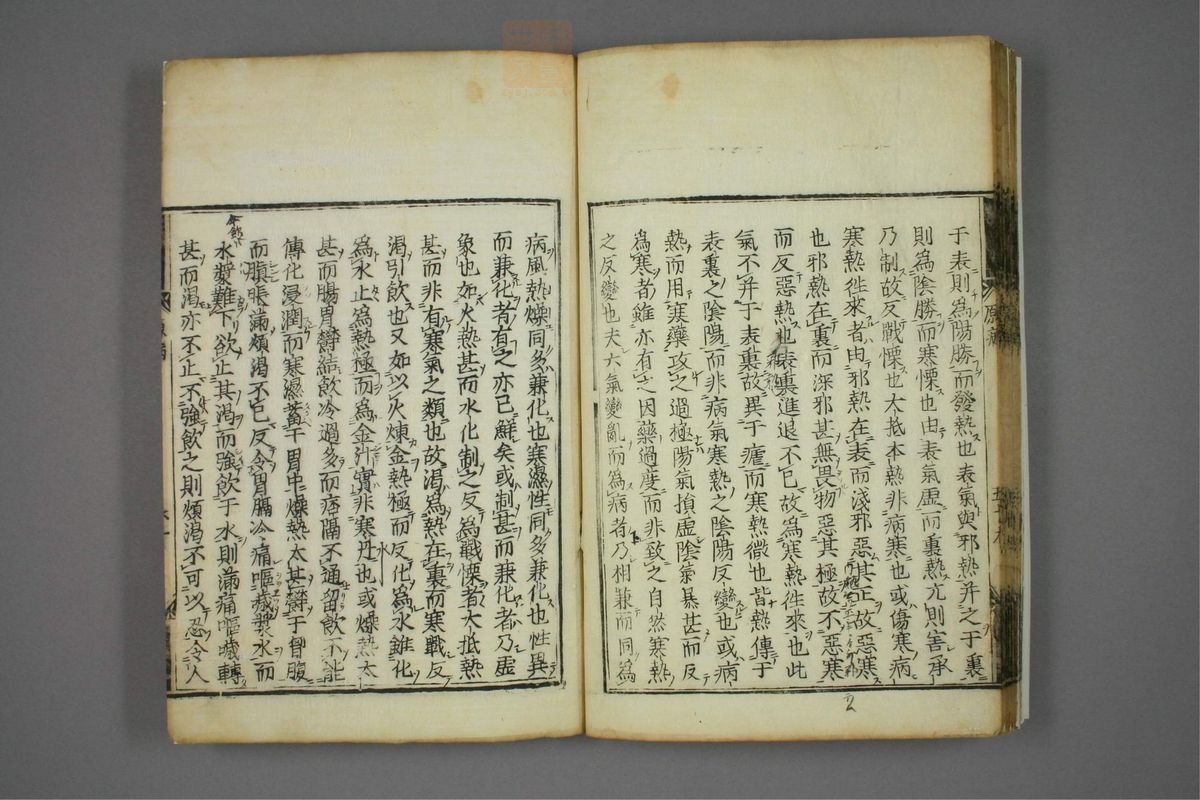 于表則爲陽勝而發熱也表氣與邪熱并之于裏
則爲陰勝而寒慄也由表氣虛而裏熱亢則害承
乃制故反戰慄也大抵本熱非病寒也或傷寒病
寒熱徃來者由邪熱在表而淺邪惡其正故惡寒
也邪熱在裏而深邪甚無畏物惡其極故不惡寒
而反惡熱也表裏進退不已故爲寒熱徃來也此
氣不并于表裏故異于瘧而寒熱微也皆熱傳于
表裏之陰陽而非病氣寒熱之陰陽反變也或病
熱而用寒藥攻之過極陽氣損虛陰氣暴甚而反
爲寒者雖亦有之因藥過度而非致之自然寒熱
之反變也夫六氣變亂而爲病者乃相兼而同爲
病風熱燥同多兼化也寒濕性同多兼化也性異
而兼化者有之亦已鮮矣或制甚而兼化者乃虛
象也如火熱甚而水化制之反爲戰慄者大抵熱
甚而非有寒氣之類也故渴爲熱在裏而寒戰反
渴引飲也又如以火煉金熱極而反化爲水雖化
爲水止爲熱極而爲金汁實非寒也或燥熱太
甚而腸胃鬱結飲冷過多而痞隔不通留飲不能
傳化浸潤而寒濕蓄于胃中燥熱太甚鬱于胷腹
而腹脹滿煩渴不已反令胃膈冷痛嘔噦漿水而
水漿難下欲止其渴而強飲于水則滿痛嘔噦轉
甚而渴亦不止不強飲之則煩渴不可以忍令人